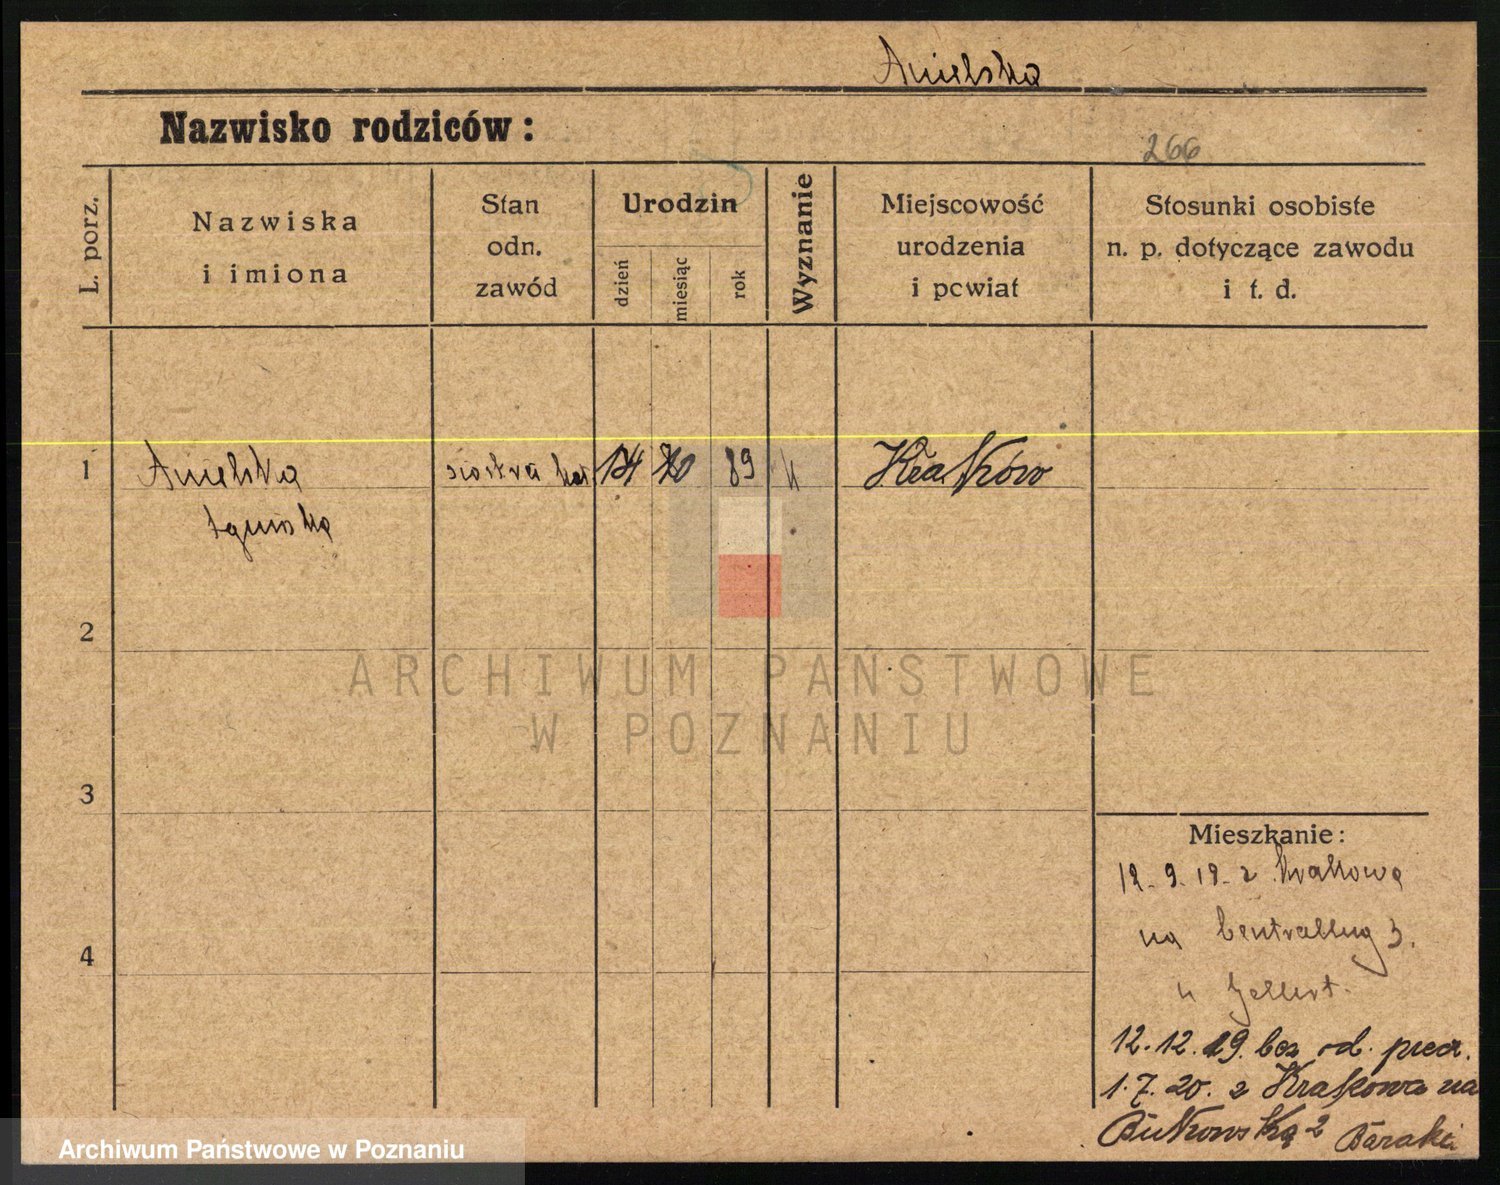 Anielska
Nazwisko rodziców:
266
L. porz.
Nazwiska
i imiona
Stan
odn.
zawód
Urodzin
dzień
miesiąc
rok
Wyznanie
Miejscowość
urodzenia
i powiat
Stosunki osobiste
n. p. dotyczące zawodu
i t. d.
1 Anielska siostra 89 Kraków
2
ARCHIWUM PAŃSTWOWE
W POZNANIU
3
Mieszkanie:
12.9.19. z Krakowa
na 3.
4
12.12.19. bez od.
1.7.20. z Krakowa na
Bukowską 2 Baraki
Archiwum Państwowe w Poznaniu